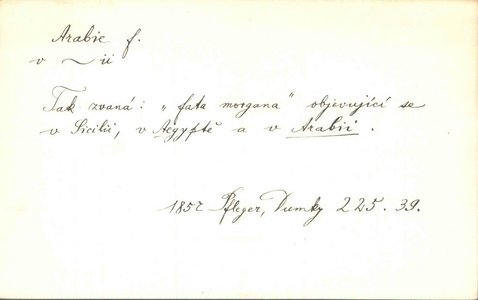 Arabie f.
v ~ ii
Tak zvaná: „fata morgana" objevující se
v Sicilii, v Aegyptě a v Arabii.
1857 Pfleger, Dumky 225. 39.